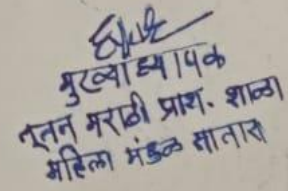 मुख्याध्यापक
नूतन मराठी प्राथ. शाळा
महिला मंडळ सातारा